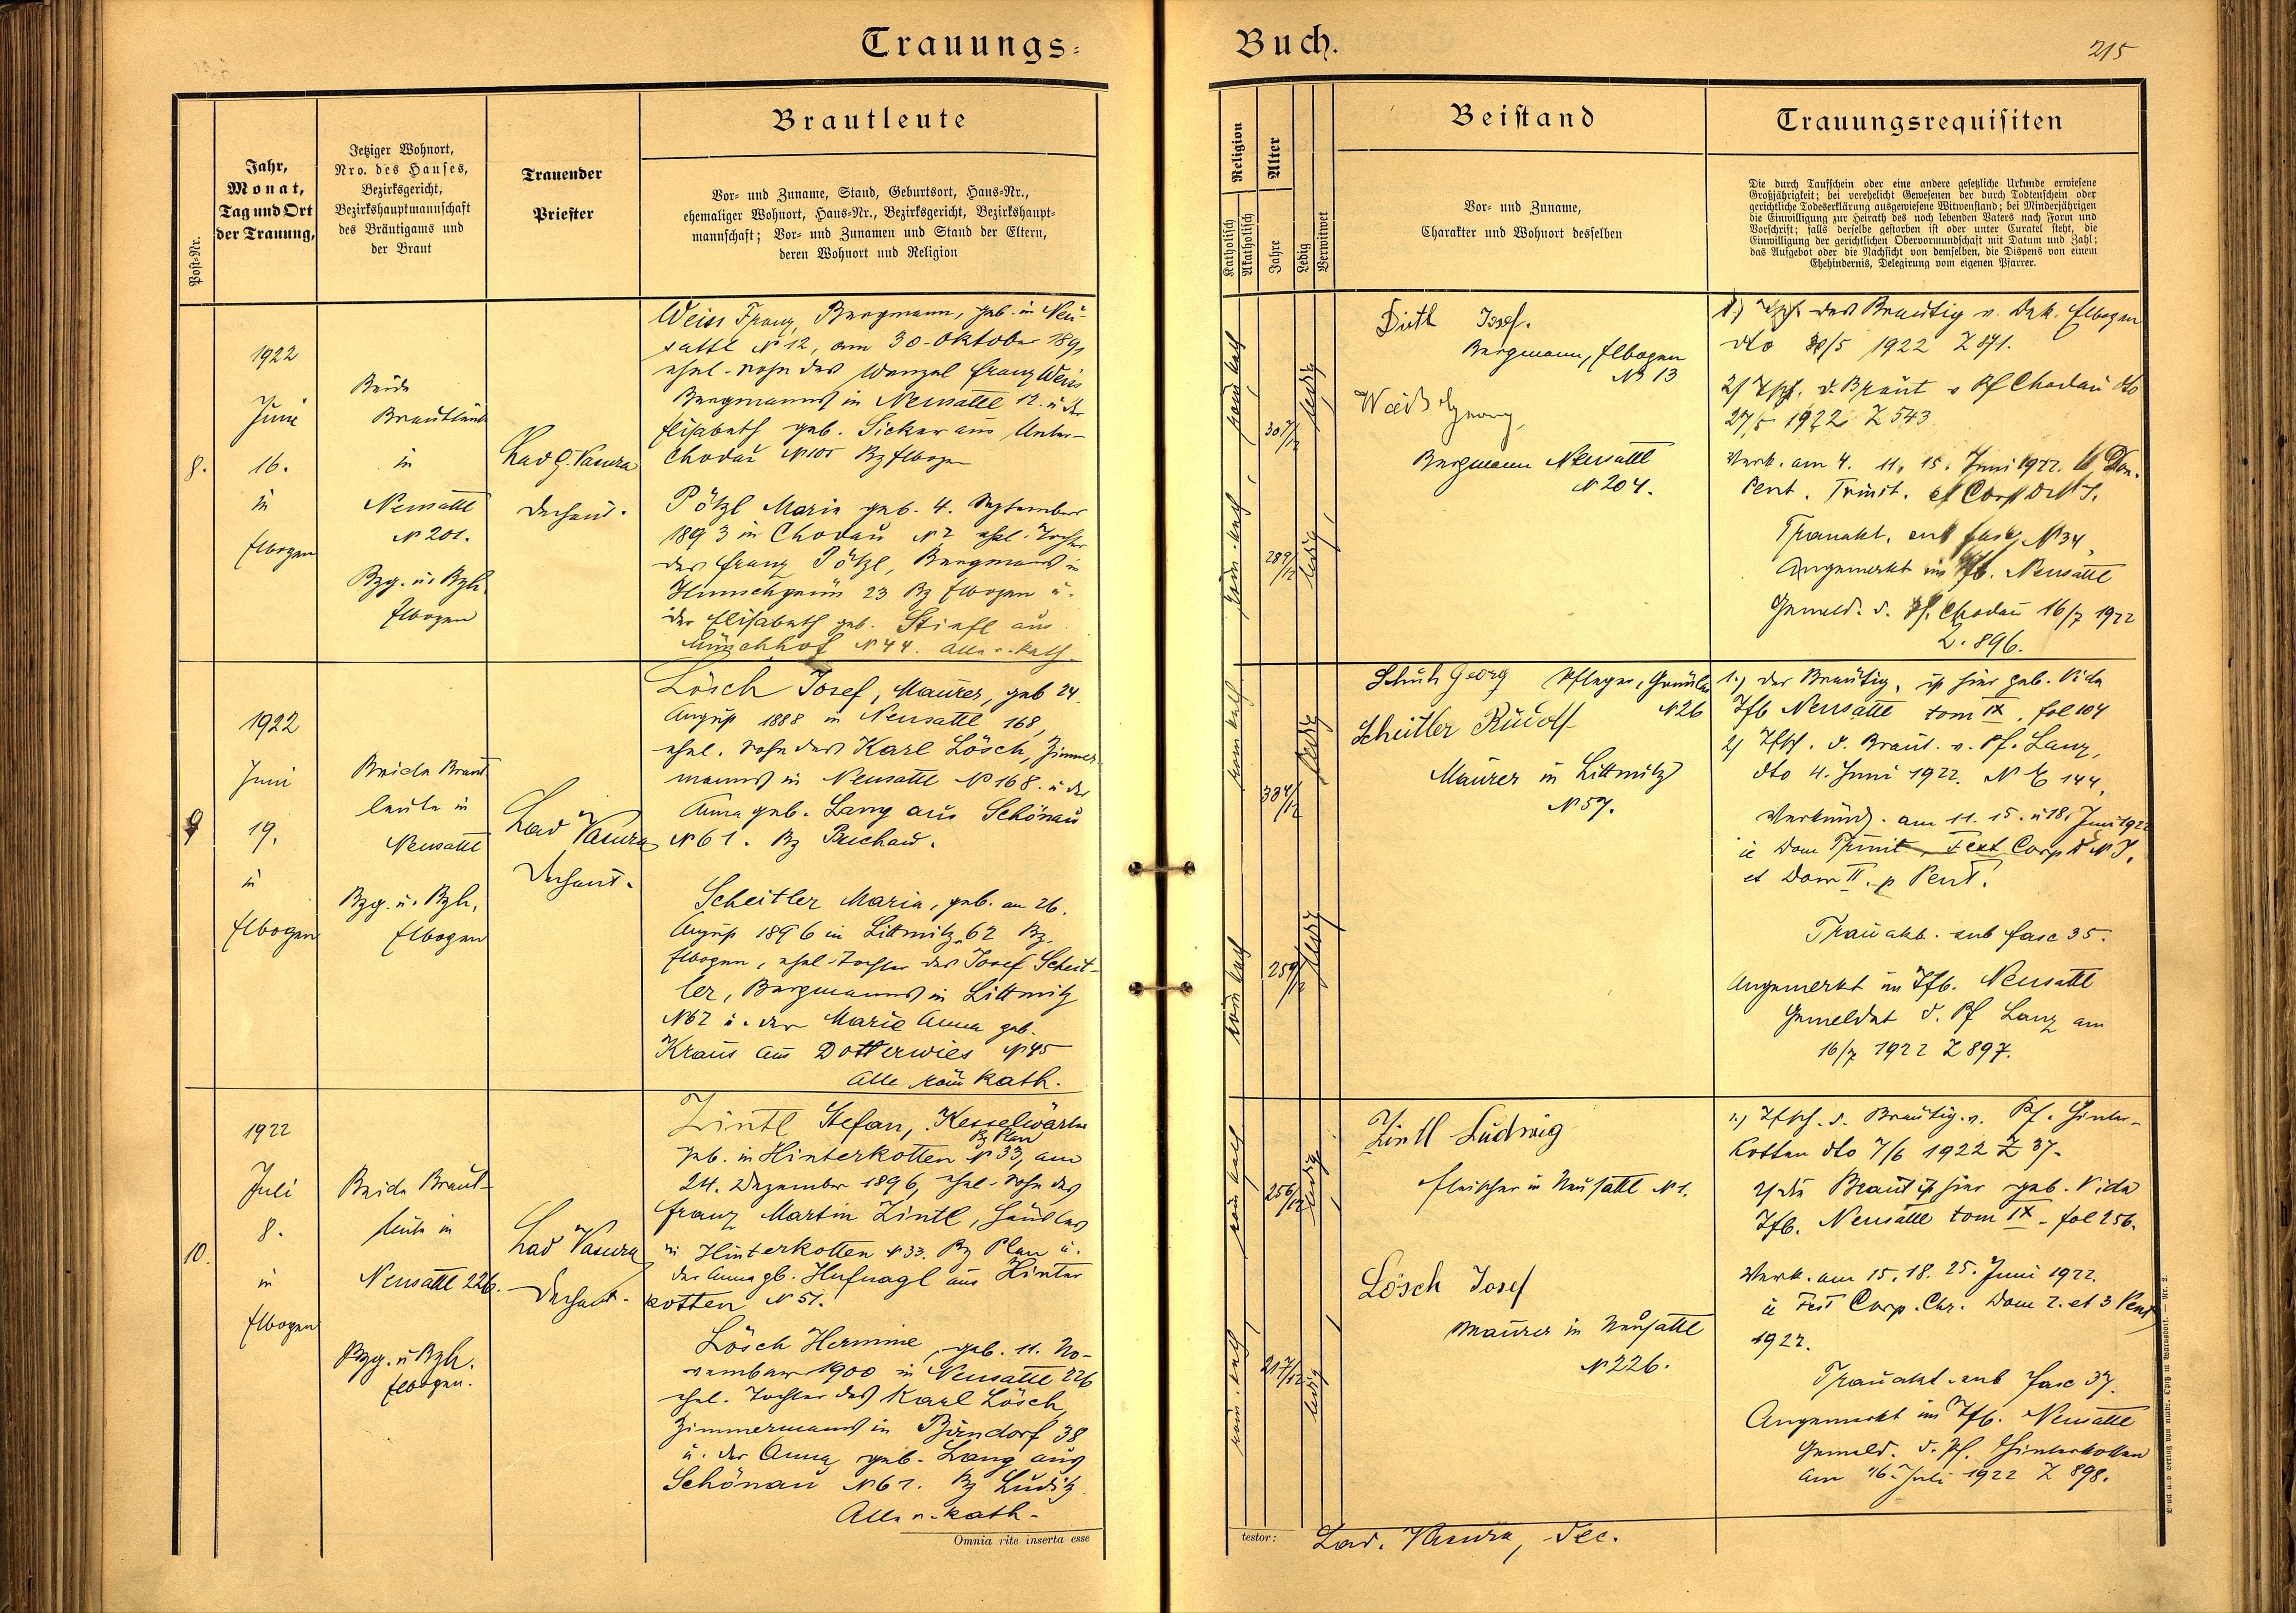 Trauungs-
Buch.
215
Post-Nr.
Jahr,
Monat,
Tag und Ort
der Trauung,
Jetziger Wohnort,
Nro. des Hauses,
Bezirksgericht,
Bezirkshauptmannschaft
des Bräutigams und
der Braut
Trauender
Priester
Brautleute
Vor- und Zuname, Stand, Geburtsort, Haus-Nr.,
ehemaliger Wohnort, Haus-Nr., Bezirksgericht, Bezirkshaupt-
mannschaft; Vor- und Zunamen und Stand der Eltern,
deren Wohnort und Religion
Religion
Katholisch
Akatholisch
Alter
Jahre
Ledig
Verwitwet
Beistand
Vor- und Zuname,
Charakter und Wohnort desselben
Trauungsrequisiten
Die durch Taufschein oder eine andere gesetzliche Urkunde erwiesene
Großjährigkeit; bei verehelicht Gewesenen der durch Todtenschein oder
gerichtliche Todeserklärung ausgewiesene Witwenstand; bei Minderjährigen
die Einwilligung zur Heirath des noch lebenden Vaters nach Form und
Vorschrift; falls derselbe gestorben ist oder unter Curatel steht, die
Einwilligung der gerichtlichen Obervormundschaft mit Datum und Zahl;
das Aufgebot oder die Nachsicht von demselben, die Dispens von einem
Ehehindernis, Delegirung vom eigenen Pfarrer.
8.
1922
Juni
16.
in
Elbogen
Beide
Brautleute
in
Neusattl
N 201.
Bzg. u. Bzh.
Elbogen
Lad. Vasura
Dechant.
Weiss Franz, Bergmann, geb. in Neu-
sattl N 12, am 30. Oktober 1891
ehel. Sohn des Wenzel Franz Weiss
Bergmanns in Neusattl 12. u. der
Elisabeth geb. Sicker aus Unter-
Chodau N 105 Bz Elbogen
Pötzl Maria geb. 4. September
1893 in Chodau N 2 ehel. Tochter
des Franz Pötzl, Bergmanns in
Hunschgrün 23 Bz Elbogen u.
der Elisabeth geb. Stiefl aus
Münchhof N 44. Alle r. kath.
röm. kath
röm. kath
30 7/12
28 9/12
ledig
ledig
Dietl Josef.
Bergmann, Elbogen
N 13
Weiss Georg,
Bergmann Neusattl
N 204.
1.) Tfsch. des Bräutig v. Dek. Elbogen
dto 30/5 1922 Z 871.
2) Tfsch. d. Braut v Pf Chodau dto
27/5 1922 Z 543
Verk. am 4. 11. 15. Juni 1922. Dom.
Pent. Trinit. et Corp D N J.
Trauakt. sub fasc. N 34,
Angemerkt im Tfb. Neusattl
Gemeld. d. Pf. Chodau 16/7 1922
Z. 896.
9
1922
Juni
19.
in
Elbogen
Beide Braut-
leute in
Neusattl
Bzg. u. Bzh.
Elbogen
Lad Vasura
Dechant.
Lösch Josef, Maurer, geb 24.
August 1888 in Neusattl 168,
ehel. Sohn des Karl Lösch, Zimmer-
manns in Neusattl N 168. u. der
Anna geb. Lang aus Schönau
N 61. Bz Buchau.
Scheitler Maria, geb. am 26.
August 1896 in Littmitz 62 Bz.
Elbogen, ehel. Tochter des Josef Scheit-
ler, Bergmanns in Littmitz
N 62 u. der Marie Anna geb.
Kraus aus Dotterwies N 45
Alle röm kath.
röm kath
röm kath
33 4/12
25 9/12
ledig
ledig
Schuh Georg Pfleger, Grünlas
N 26
Scheitler Rudolf
Maurer in Littmitz
N 57.
1.) Der Bräutig. ist hier geb. Vide
Tfb Neusattl tom IX. fol 104
2) Tfsch. d. Braut. v. Pf. Lanz,
dto 4. Juni 1922. N E 144,
Verkünd. am 11. 15. u 18. Juni 1922
ie Dom Trinit, Fest Corp D N J.
et Dom II. p Pent.
Trauakt. sub fasc 35.
Angemerkt im Tfb. Neusattl
Gemeldet d. Pf Lanz am
16/7 1922 Z 897.
10.
1922
Juli
8.
in
Elbogen
Beide Braut-
leute in
Neusattl 226.
Bzg. u Bzh.
Elbogen.
Lad Vasura
Dechant.
Zintl Stefan, Kesselwärter
Bz Plan
geb. in Hinterkotten N 33, am
24. Dezember 1896, ehel. Sohn des
Franz Martin Zintl, Häuslers
in Hinterkotten N 33. Bz Plan u.
der Anna gb. Hufnagl aus Hinter
kotten N 51.
Lösch Hermine, geb. 11. No-
vember 1900 in Neusattl 226
ehel. Tochter des Karl Lösch,
Zimmermanns in Birndorf 38
u. der Anna geb. Lang aus
Schönau N 61. Bz Luditz
Alle r. kath.
röm kath
röm. kath
25 6/12
21 7/12
ledig
ledig
Zintl Ludwig
Fleischer in Neusattl N 1.
Lösch Josef
Maurer in Neusattl
N 226.
1.) Tfsch. d. Bräutig. v. Pf. Hinter-
kotten dto 7/6 1922 Z 37.
2) Die Braut ist hier geb. Vide
Tfb. Neusattl tom IX. fol 256.
Verk. am 15. 18. 25. Juni 1922.
ie Fest Corp. Chr. Dom 2. et 3 Pent
1922.
Trauakt. sub fasc 37.
Angemerkt im Tfb. Neusattl
Gemeld. d. Pf. Hinterkotten
am 16. Juli 1922 Z 898.
Omnia rite inserta esse
testor:
Lad. Vasura, Dec.